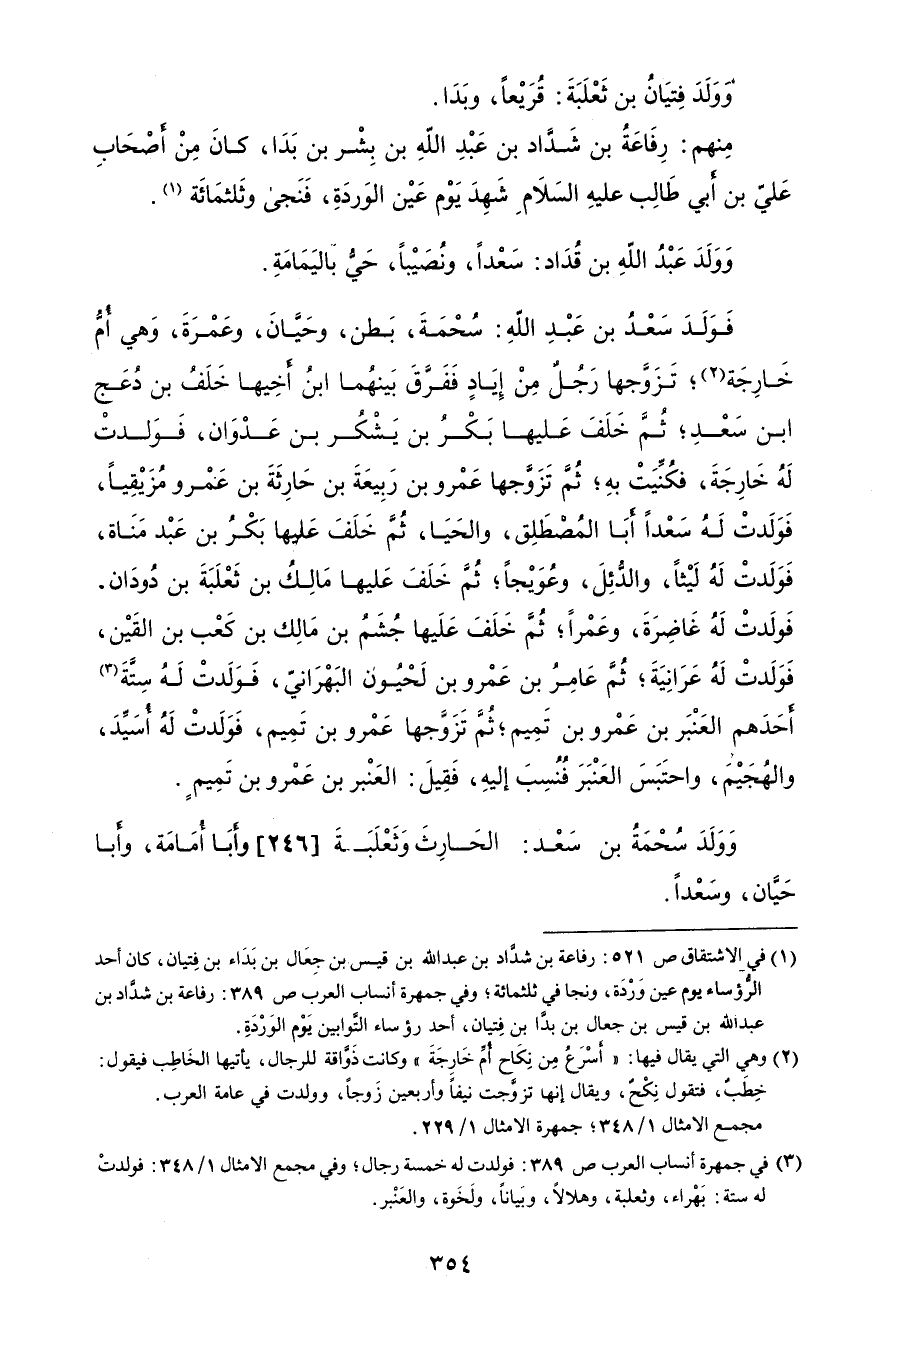 وَوَلَدَ فِتيَانُ بن ثَعْلَبَةَ: قُرَيْعاً، وبَدَا.
مِنهم: رِفَاعَةُ بن شَدَّاد بن عَبْدِ اللّهِ بن بِشْر بن بَدَا، كانَ مِنْ أَصْحَابِ
عَليّ بن أَبي طَالِب عليه السَلَام شَهِدَ يَوْم عَيْن الوَردَةِ، فَنَجىٰ وثَلثمَائَة (١).
وَوَلَدَ عَبْدُ اللّهِ بن قُدَاد: سَعْداً، ونُصَيْباً، حَيٌّ بِاليَمَامَةِ.
فَوَلَدَ سَعْدُ بن عَبْدِ اللّهِ: سُحْمَةَ، بَطن، وحَيَّانَ، وعَمْرَةَ، وَهي أُمُّ
خَارِجَة(٢)؛ تَزوَّجها رَجُلٌ مِنْ إِيَادٍ فَفَرَّقَ بَينهُما ابنُ أَخِيها خَلَفُ بن دُعَج
ابن سَعْدِ؛ ثُمَّ خَلَفَ عَليها بَكْرُ بن يَشْكُر بن عَدْوَان، فَوَلدتْ
لَهُ خَارِجَةَ، فكُنِّيَتْ بِهِ؛ ثُمَّ تَزوَّجها عَمْرو بن رَبيعَةَ بن حَارِثَةَ بن عَمْرو مُزَيْقِياً،
فَوَلَدتْ لَهُ سَعْداً أَبَا المُصْطَلِق، والحَيَا، ثُمَّ خَلَفَ عَليها بَكْرُ بن عَبْد مَنَاة،
فَوَلدتْ لَهُ لَيْثاً، والدُّئِلَ، وعُوَيْجاً؛ ثُمَّ خَلَفَ عَليها مَالِكُ بن ثَعْلَبَةَ بن دُودَان.
فَولَدتْ لَهُ غَاضِرَةَ، وعَمْراً؛ ثُمَّ خَلَفَ عَلَيها جُشَمُ بن مَالِك بن كَعْب بن القَيْن،
فَوَلَدتْ لَهُ عَرَانِيَةَ؛ ثُمَّ عَامِرُ بن عَمْرو بن لَحْيُون البَهْرَانيّ، فَوَلدتْ لَهُ سِتَّةَ(٣)
أَحَدَهم العَنْبَر بن عَمْرو بن تَمِيم؛ ثُمَّ تَزَوَّجها عَمْرو بن تَمِيم، فَوَلدتْ لَهُ أُسَيِّدَ،
والهُجَيْمَ، واحتَبَسَ العَنْبَرَ فَنُسِبَ إليهِ، فَقِيلَ: العَنْبر بن عَمْرو بن تَمِيمٍ.
وَوَلَدَ سُحْمَةُ بن سَعْد: الحَارِثَ وَثَعْلَبَةَ [٢٤٦] وأَبَا أُمَامَة، وأَبا
حَيَّان، وسَعْداً.
(١) في الاشتقاق ص ٥٢١: رفاعة بن شدَّاد بن عبدالله بن قيس بن جِعَال بن بَدَاء بن فِتيان، كان أحد
الرُّؤساء يوم عين وَرْدَة، ونجا في ثلثمائة؛ وفي جمهرة أنساب العرب ص ٣٨٩: رفاعة بن شدَّاد بن
عبدالله بن قيس بن جعال بن بدَّا بن فِتيان، أحد رؤساء التَّوابين يَوْم الوَرْدَةِ.
(٢) وهي التي يقال فيها: « أَسْرَعُ مِن نِكَاح أُمِّ خَارِجَةَ » وكانت ذوَّاقة للرجال، يأتيها الخَاطِب فيقول:
خِطَبٌ، فتقول نِكْحٌ، ويقال إنها تزوَّجت نيفاً وأربعين زَوجاً، وولدت في عامة العرب.
مجمع الامثال ١/ ٣٤٨؛ جمهرة الامثال ١/ ٢٢٩.
(٣) في جمهرة أنساب العرب ص ٣٨٩: فولدت له خمسة رجال؛ وفي مجمع الامثال ١/ ٣٤٨: فولدتْ
له ستة: بَهْراء، وثعلبة، وهلالاً، وبَياناً، ولَخوة، والعَنْبر.
٣٥٤